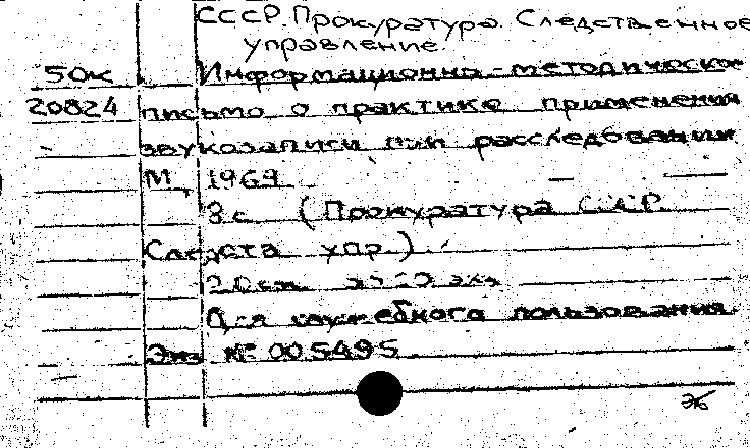 СССР. Прокуратура. Следственное
управление.
50к Информационно-методическое
20824 письмо о практике применения
звукозаписи при расследовании
М., 1969
8с (Прокуратура СССР.
Следств упр.)
20см. экз
Для служебного пользования
Экз № 005495